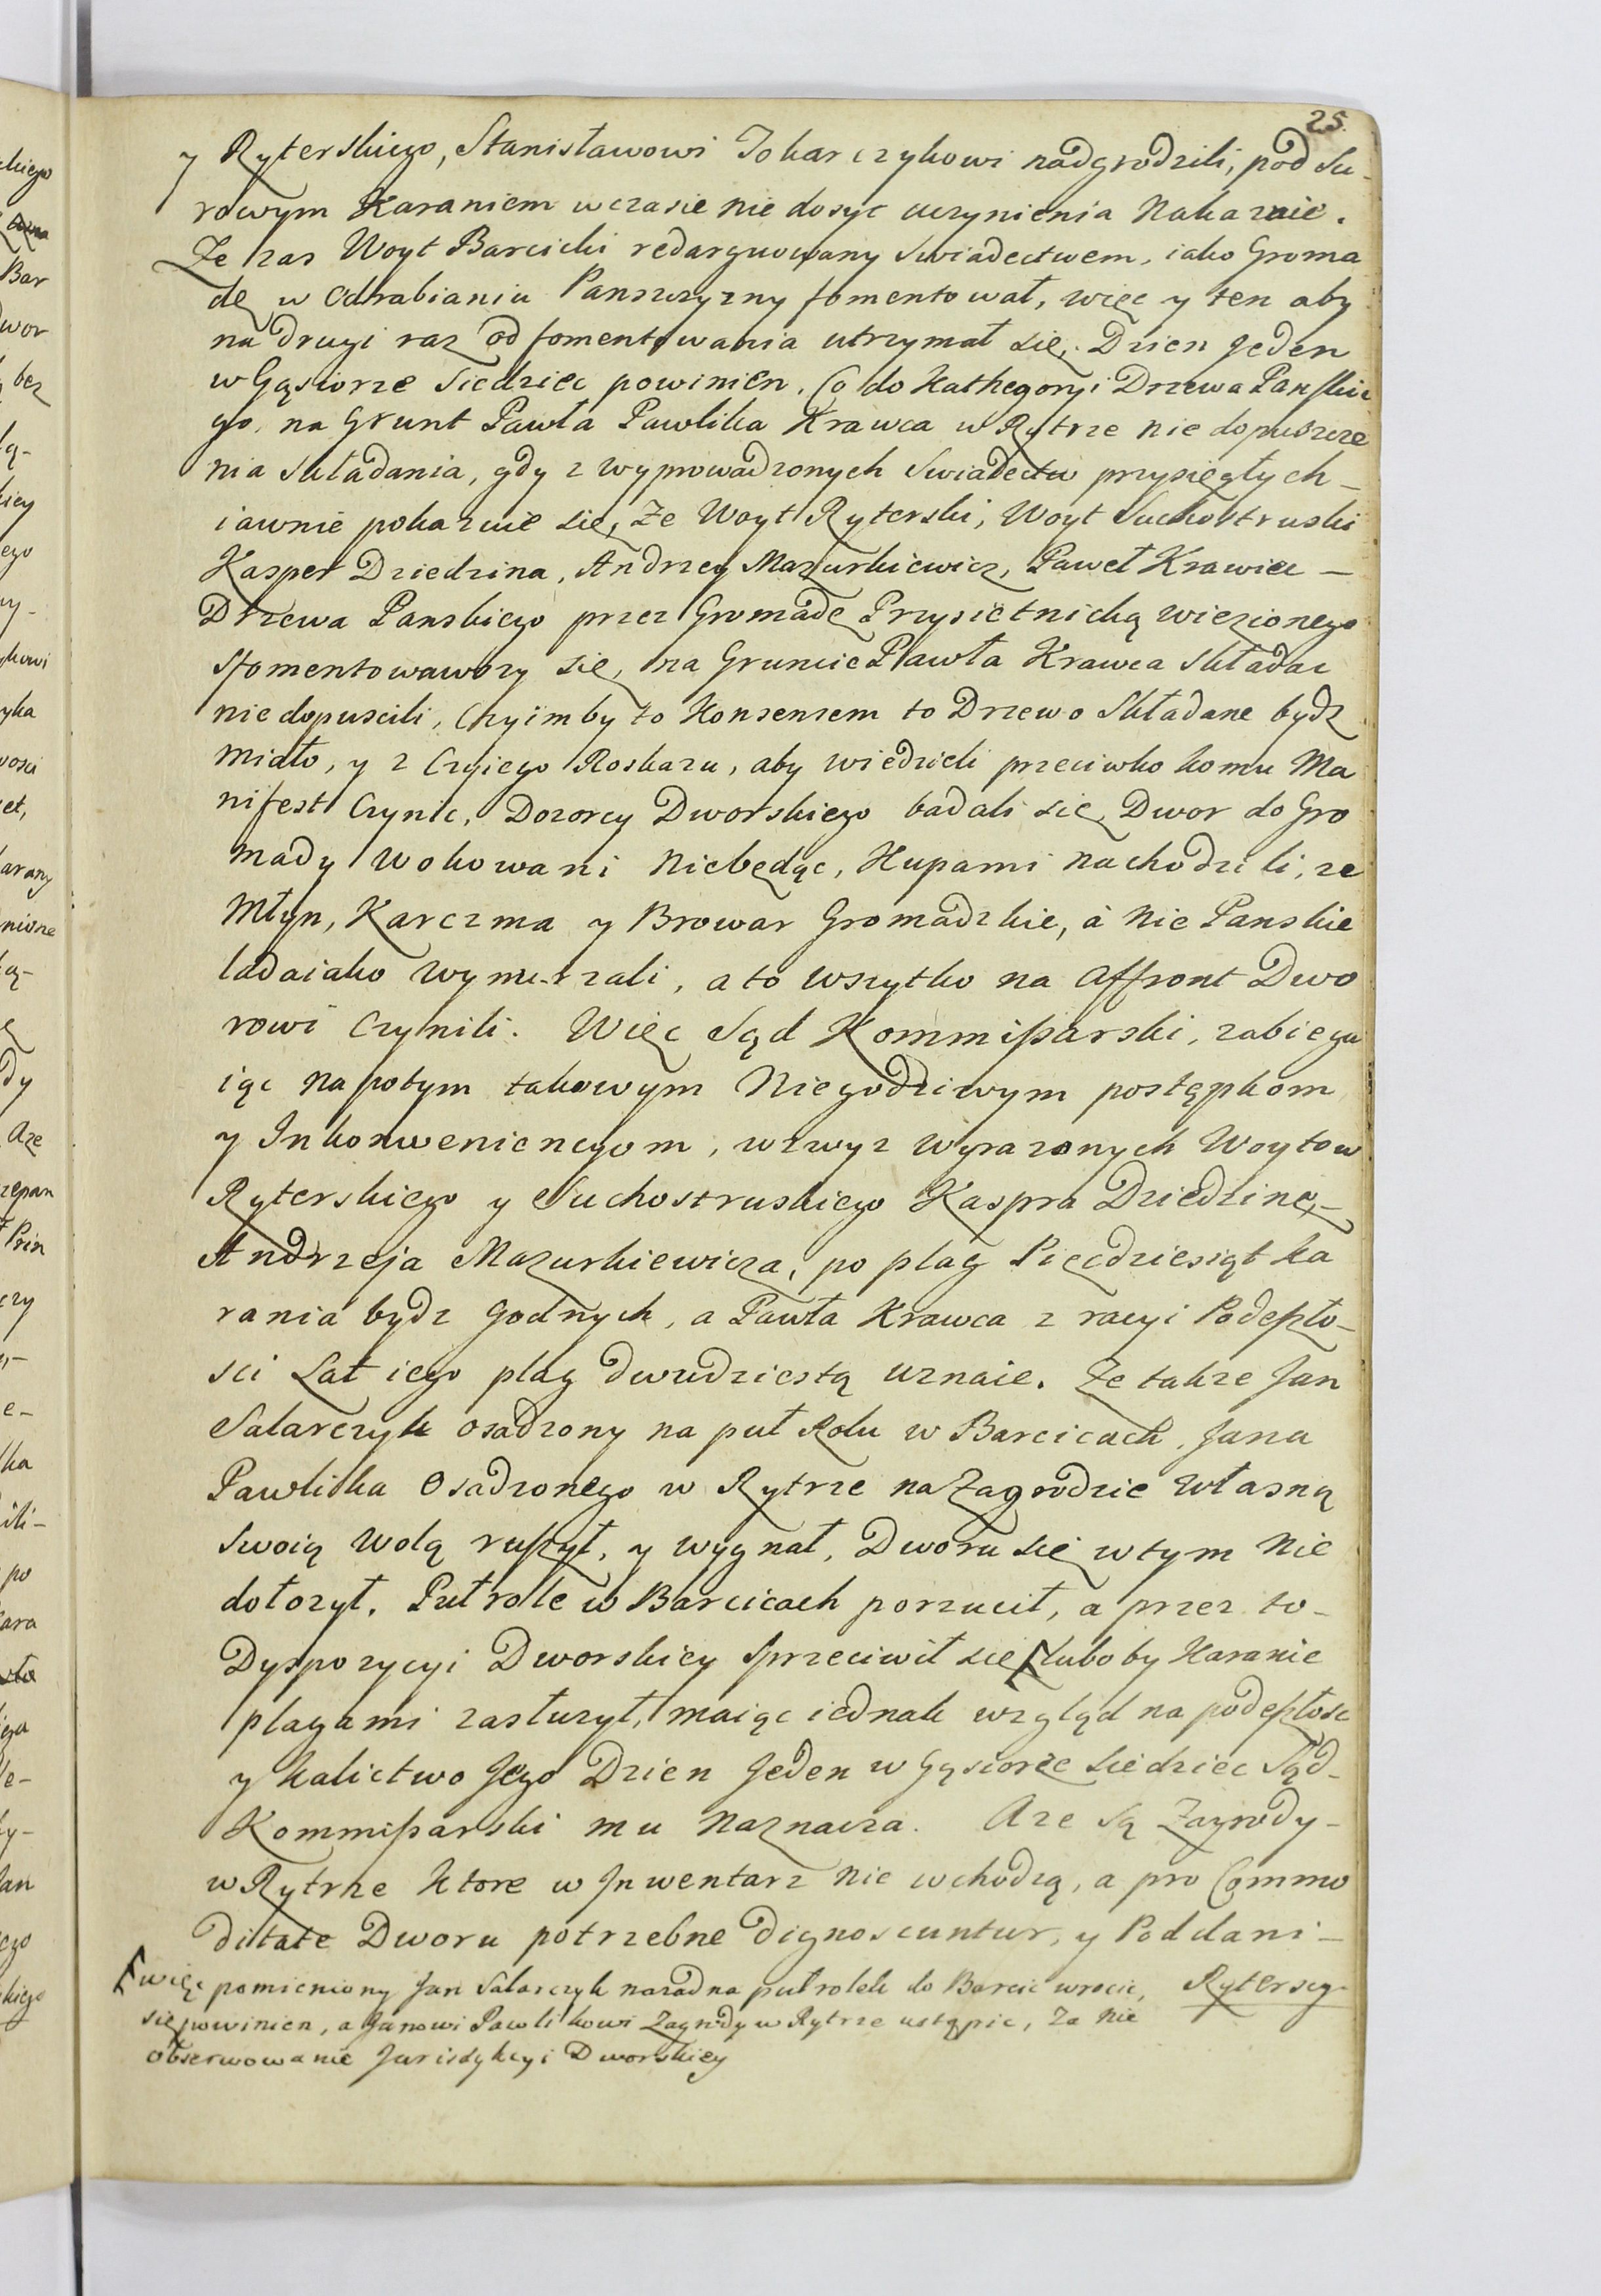 25.
y Ryterskiego, Stanisławowi Tokarczykowi nadgrodzili, pod Su-
rowym Karaniem wczasie nie dosyc uczynienia Nakazuie.
Ze zas Woyt Barcicki redarguowany Swiadectwem, iako Groma
dę w Odrabianiu Panszczyzny fomentował, więc y ten aby
na drugi raz od fomentowania utrzymał się, Dzien Jeden
w Gąsiorze Siedziec powinien. Co do Kathegoryi Drzewa Panskie
go, na Grunt Pawła Pawlika Krawca w Rytrze nie dopuszcze
nia Składania, gdy z wyprowadzonych Swiadectw przysięgłych -
iawnie pokazuie się, Ze Woyt Ryterski, Woyt Suchostruski
Kasper Dziedzina, Andrzey Mazurkiewicz, Paweł Krawiec -
Drzewa Panskiego przez Gromadę Przysietnicką wiezionego
sfomentowawszy się, na Gruncie Pawła Krawca Składac
nie dopuscili, Czyimby to Konsensem to Drzewo Składane bydz
miało, y z Czyiego Roskazu, aby wiedzieli przeciwko komu Ma
nifest Czynic, Dozorcy Dworskiego badali się, Dwor do Gro
mady Wokowani Niebędąc, Kupami nachodzili, ze
Młyn, Karczma y Browar Gromadzkie, à nie Panskie
ladaiako wymurzali, a to wszytko na Affront Dwo
rowi Czynili. Więc Sąd Kommissarski, zabiega
iąc napotym takowym Niegodziwym postępkom
y Inkonwenienciom, wzwyz wyrazonych Woytow
Ryterskiego y Suchostruskiego Kaspra Dziedzinę -
Andrzeja Mazurkiewicza, po plag Pięcdziesiąt ka
rania bydz godnych, a Pawła Krawca z racyi Podeszło-
sci Lat iego plag dwudziestą uznaie. Ze takze Jan
Salarczyk osadzony na puł Rolu w Barcicach, Jana
Pawlika Osadzonego w Rytrze na Zagrodzie własną
swoią wolą ruszył, y wygnał, Dworu się w tym nie
dołozył. Puł role w Barcicach porzucił, a przez to -
Dyspozycyi Dworskiey sprzeciwił się luboby Karanie
plagami zasłuzył, maiąc iednak wzgląd na podeszłosc
y kalictwo Jego Dzien Jeden w Gąsiorze siedziec Sąd -
Kommissarski mu Naznacza. Aze są Zagrody -
w Rytrze Ktore w Inwentarz nie wchodzą, a pro Commo
ditate Dworu potrzebne dignoscuntur, y Poddani -
Rytersey
więc pomieniony Jan Salarczyk nazad na puł rolek do Barcic wrocic,
się powinien, a Janowi Pawlikowi Zagrody w Rytrze ustąpic, Za nie
obserwowanie Jurisdykcyi Dworskiey